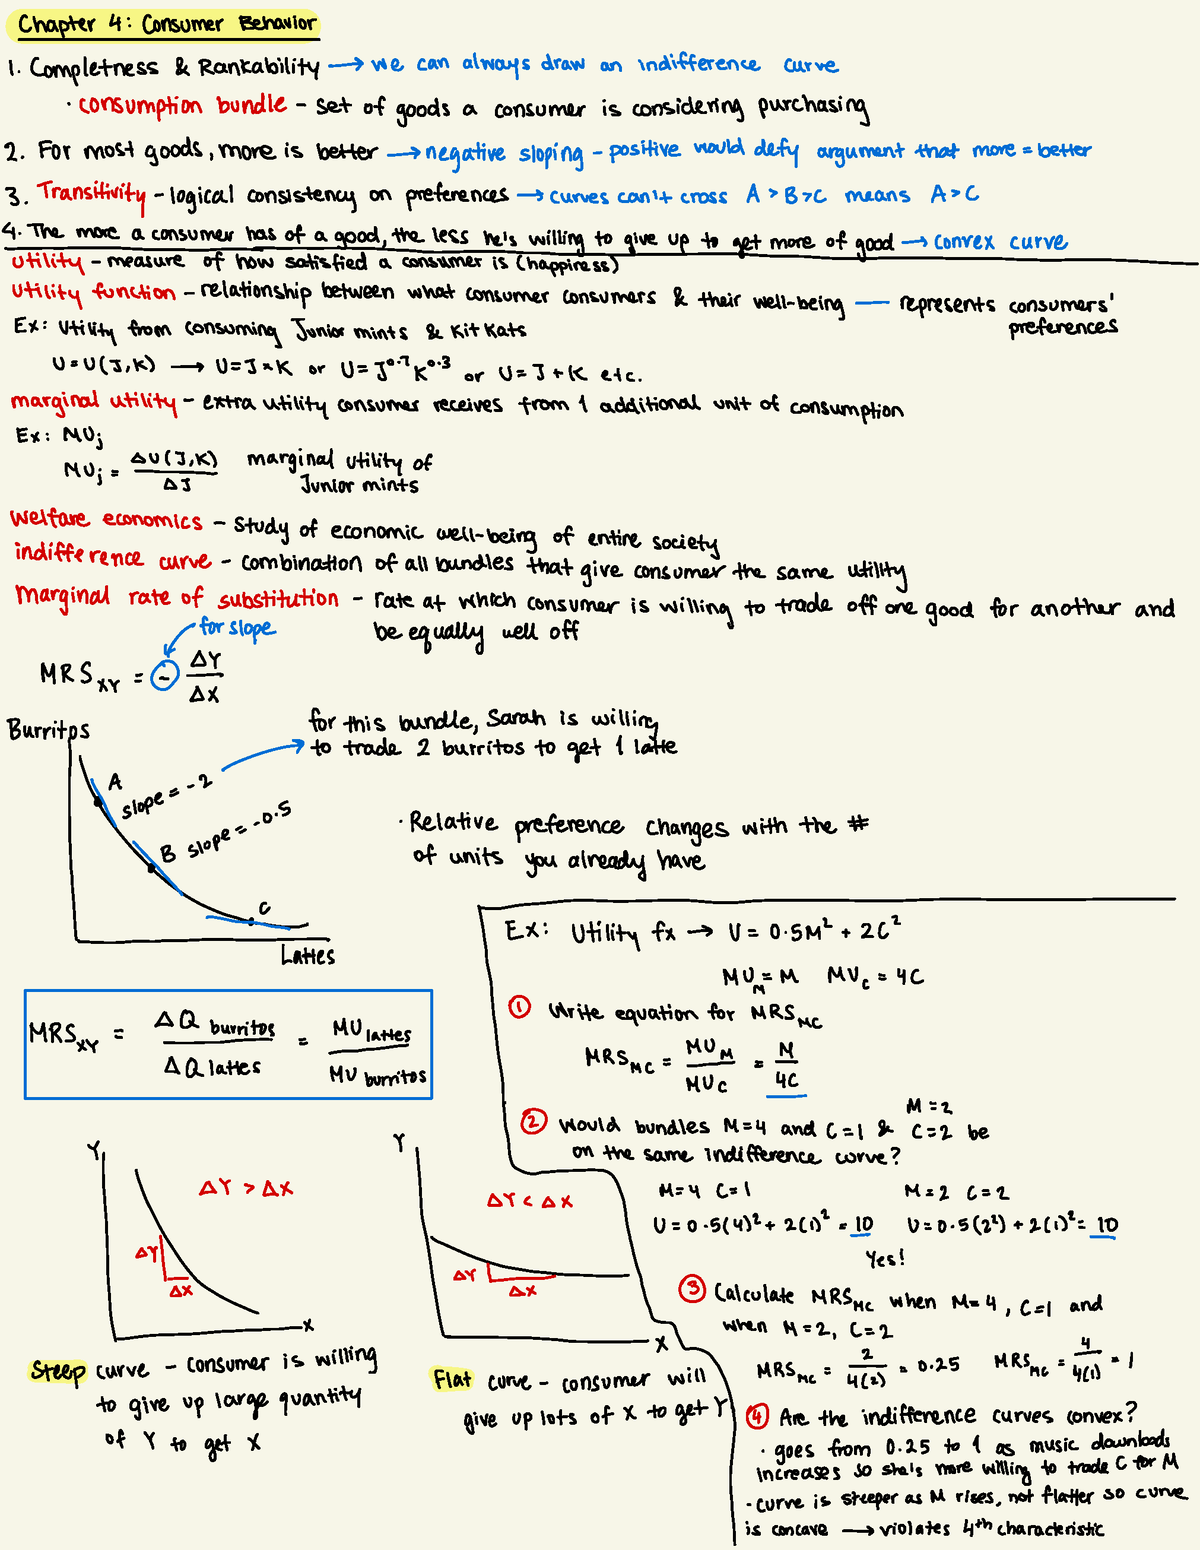 Chapter 4: Consumer Behavior
1. Completness & Rankability → we can always draw an indifference curve
· consumption bundle - set of goods a consumer is considering purchasing
2. For most goods, more is better → negative sloping - positive would defy argument that more = better
3. Transitivity - logical consistency on preferences → curves can't cross A > B > C means A > C
4. The more a consumer has of a good, the less he's willing to give up to get more of good → convex curve
utility - measure of how satisfied a consumer is (happiness)
utility function - relationship between what consumer consumers & their well-being — represents consumers' preferences
Ex: utility from consuming Junior mints & Kit Kats
U = U(J,K) → U = J × K or U = J^0.7 K^0.3 or U = J + K etc.
marginal utility - extra utility consumer receives from 1 additional unit of consumption
Ex: MUj
MUj = ΔU(J,K) / ΔJ marginal utility of Junior mints
welfare economics - study of economic well-being of entire society
indifference curve - combination of all bundles that give consumer the same utility
Marginal rate of substitution - rate at which consumer is willing to trade off one good for another and
be equally well off
for slope
MRS XY = - ΔY / ΔX
Burritos
A
slope = -2
B slope = -0.5
C
Lattes
for this bundle, Sarah is willing
to trade 2 burritos to get 1 latte
· Relative preference changes with the #
of units you already have
MRS XY = ΔQ burritos / ΔQ lattes = MU lattes / MU burritos
Y
ΔY > ΔX
ΔY
ΔX
X
Steep curve - consumer is willing
to give up large quantity
of Y to get X
Y
ΔY < ΔX
ΔY
ΔX
X
Flat curve - consumer will
give up lots of X to get Y
Ex: Utility fx → U = 0.5M² + 2C²
MU M = M MU C = 4C
① Write equation for MRS MC
MRS MC = MU M / MU C = M / 4C
② Would bundles M=4 and C=1 & M=2 C=2 be
on the same indifference curve?
M=4 C=1
U = 0.5(4)² + 2(1)² = 10
M=2 C=2
U = 0.5(2²) + 2(1)² = 10
Yes!
③ Calculate MRS MC when M=4, C=1 and
when M=2, C=2
MRS MC = 2 / 4(2) = 0.25 MRS MC = 4 / 4(1) = 1
④ Are the indifference curves convex?
· goes from 0.25 to 1 as music downloads
increases so she's more willing to trade C for M
- curve is steeper as M rises, not flatter so curve
is concave → violates 4th characteristic